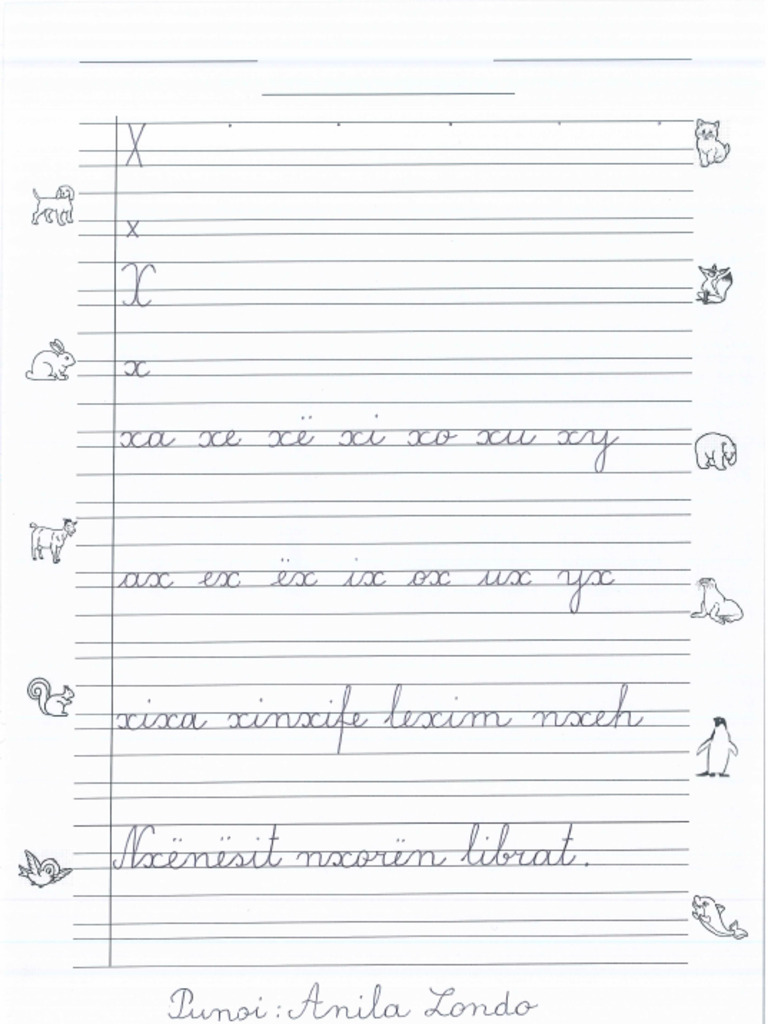 X
x
X
x
xa xe xë xi xo xu xy
ax ex ëx ix ox ux yx
xixa xinxife lexim nxeh
Nxënësit nxorën librat.
Punoi: Anila Londo